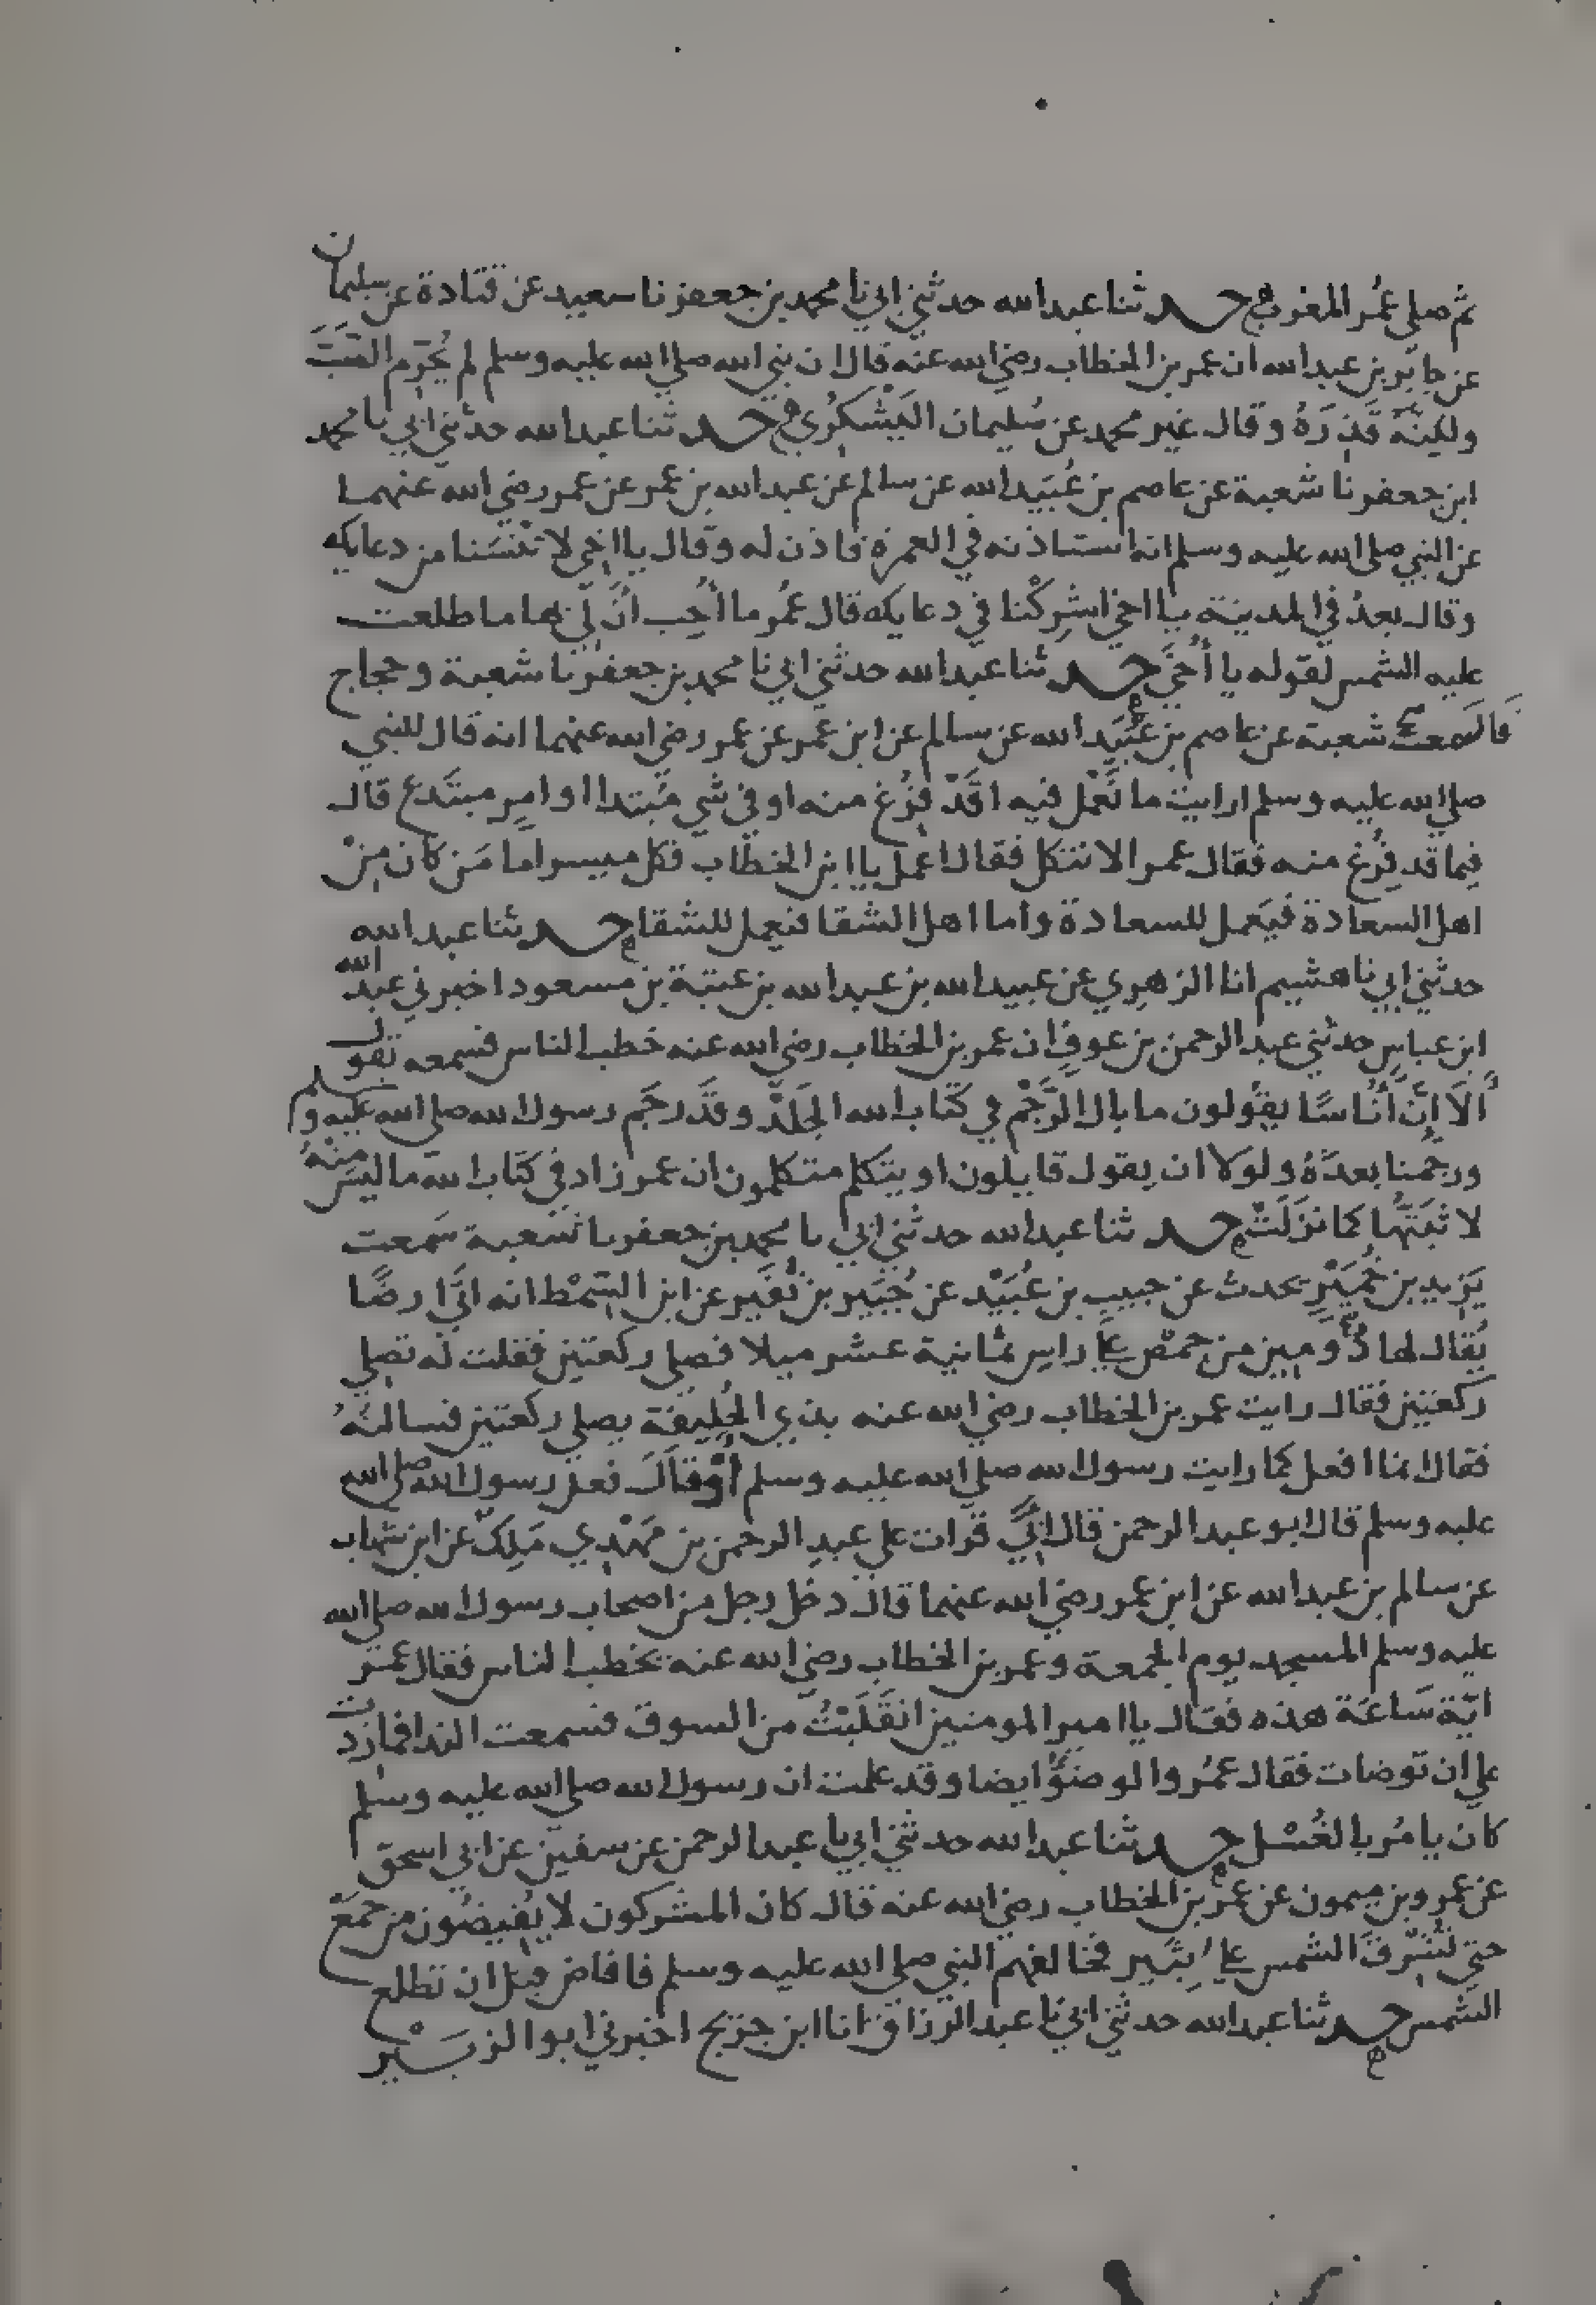 ثم صلى عمر المغرب حدثنا عبدالله حدثني ابي نا محمد بن جعفر نا سعيد عن قتادة عن سليمان
عن جابر بن عبد الله ان عمر بن الخطاب رضي الله عنه قال ان نبي الله صلى الله عليه وسلم لم يُحَرّم الضَّبَّ
ولكِنَّهُ قَذِرَهُ وقال غير محمد عن سُليمان اليَشْكُري حدثنا عبدالله حدثني ابي نا محمد
ابن جعفر نا شعبة عن عاصم بن عُبَيد الله عن سالم عن عبد الله بن عمر عن عمر رضي الله عنهما
عن النبي صلى الله عليه وسلم انه استاذنه في العمرة فاذن له وقال يا اخي لا تَنْسَنا من دعايك
وقال بعدُ في المدينة يا اخي اشرِكْنا في دعايك قال عمُر ما أُحِب أنَّ لي بها ما طلعت
عليه الشمس لقوله يا أُخَيَّ حدثنا عبدالله حدثني ابي نا محمد بن جعفر نا شعبة وحجاج
قال سمعت شعبة عن عاصم بن عُبَيد الله عن سالم عن ابن عمر عن عمر رضي الله عنهما انه قال للنبي
صلى الله عليه وسلم ارايت ما نَعْمل فيه اقَدْ فُرِغ منه او في شي مُبتدا او امر مبتَدع قال
فيما قد فُرِغ منه فقال عمر الا نتكل فقال اعمل يا ابن الخطاب فكل ميسر اما مَن كان مِنْ
اهل السعادة فيَعمل للسعادة واما اهل الشقا فيعمل للشقا حدثنا عبدالله
حدثني ابي نا هشيم انا الزهري عن عبيد الله بن عبد الله بن عتبة بن مسعود اخبرني عبد الله
ابن عباس حدثني عبد الرحمن بن عوف ان عمر بن الخطاب رضي الله عنه خطب الناس فسمعه يقول
ألَا إنَّ أُنَاسًا يقُولون ما بال الرَّجْم في كتاب الله الجَلْدُ وقَد رجَم رسول الله صلى الله عليه وسلم
ورجمنا بعدَهُ ولولا ان يقول قايلون او يتكلم متكلمون ان عمر زاد في كتاب الله ما ليسَ مِنْهُ
لاثبَتُّها كما نزَلَتْ حدثنا عبدالله حدثني ابي نا محمد بن جعفر نا شعبة سَمعت
يَزيد بن خُمَيْرٍ يحدث عن حبيب بن عُبَيْد عن جُبَير بن نُفَير عن ابن السِّمْط انه اتَى ارضًا
يُقال لها دُومين من حمص على راس ثمانية عشر ميلا فصلى ركعتين فقلت له تصلي
ركعتين فقال رايت عمر بن الخطاب رضي الله عنه بذي الحُلِيفة يصلي ركعتين فسالتهُ
فقال انما افعل كما رايت رسول الله صلى الله عليه وسلم أوْ قَالَ فعل رسول الله صلى الله
عليه وسلم قال ابو عبد الرحمن قال ابي قرات على عبد الرحمن بن مَهْدِي مَلِك عن ابن شهاب
عن سالم بن عبد الله عن ابن عمر رضي الله عنهما قال دخل رجل من اصحاب رسول الله صلى الله
عليه وسلم المسجد يوم الجمعة وعمر بن الخطاب رضي الله عنه يخطب الناس فقال عمر
ايّة سَاعَة هذه فقال يا امير المومنين انقَلَبْتُ من السوق فسمعت الندا فما زدت
على ان توضات فقال عمُر والوضوُّ ايضا وقد علمت ان رسول الله صلى الله عليه وسلم
كان يامُر بالغُسْل حدثنا عبدالله حدثني ابي نا عبد الرحمن عن سفين عن ابي اسحق
عن عمرو بن ميمون عن عمر بن الخطاب رضي الله عنه قال كان المشركون لا يُفيضُون من جَمْع
حتى تُشْرِقَ الشمس على ثَبِير فخالفهم النبي صلى الله عليه وسلم فافاض قبل ان تطلع
الشمس حدثنا عبدالله حدثني ابي نا عبد الرزاق انا ابن جريج اخبرني ابو الزبَيْر